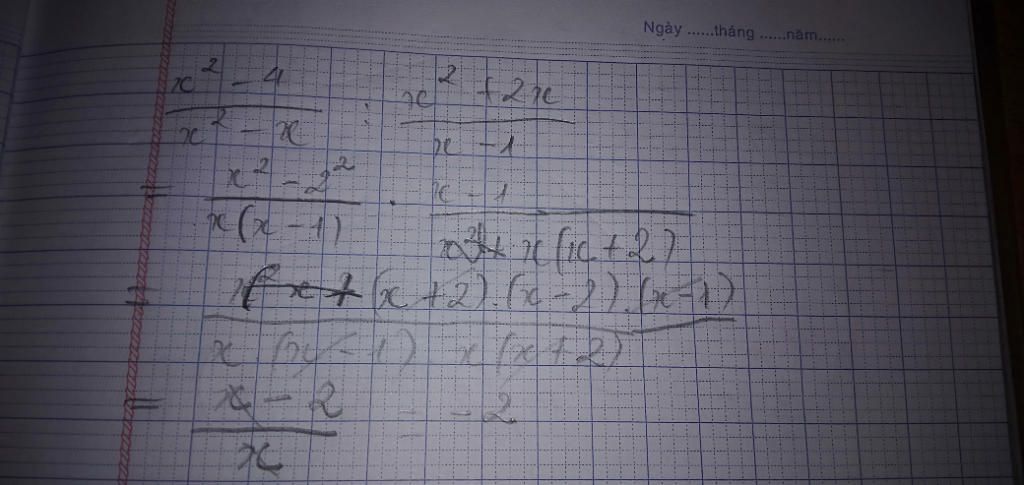 Ngày ......tháng ......năm......
x² - 4 / x² - x : x² + 2x / x - 1
= x² - 2² / x(x - 1) . x - 1 / x(x + 2)
= (x + 2).(x - 2).(x - 1) / x (x - 1) x(x + 2)
= x - 2 / x = -2